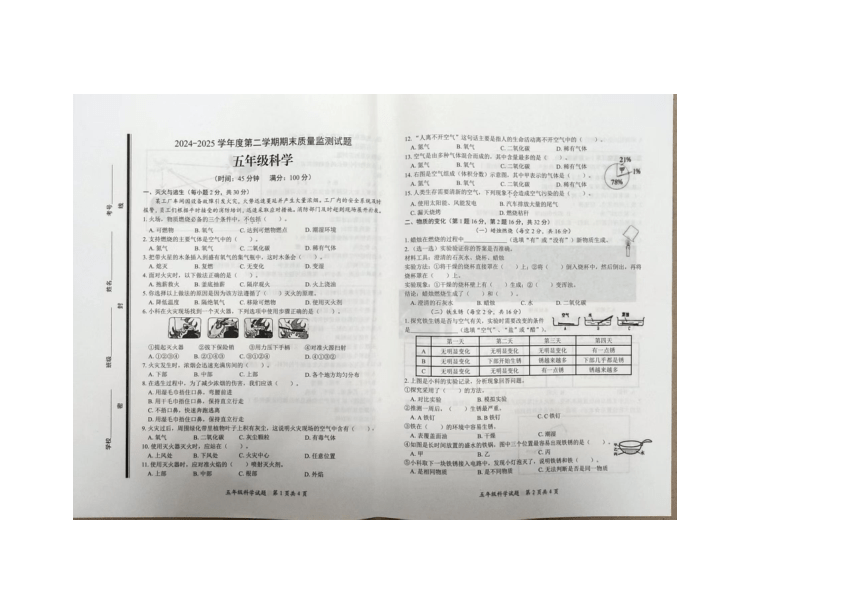 2024-2025 学年度第二学期期末质量监测试题
五年级科学
(时间:45分钟 满分:100分)
一、灭火与逃生(每小题2分,共30分)
1.火场、物质燃烧必备的三个条件中,不包括( )。
A. 可燃物 B. 氧气 C. 达到可燃物燃点 D. 潮湿环境
2. 支持燃烧的主要气体是空气中的( )。
A. 氮气 B. 氧气 C. 二氧化碳 D. 稀有气体
3. 把带火星的木条插入到盛有氧气的集气瓶中,这时木条会( )。
A. 熄灭 B. 复燃 C. 无变化 D. 变湿
4. 面对火灾时,以下做法正确的是( )。
C. 隔岸观火 D. 火上浇油
5. 你选择以上做法的原因是因为该方法遵循了( )灭火的原理。
A. 降低温度 B. 隔绝氧气 C. 移除可燃物 D. 使用灭火剂
6. 小科在火灾现场找到一个灭火器,下列选项中使用步骤正确的是( )。
①提起灭火器 ②拔下保险销 ③用力压下手柄 ④对准火源扫射
A. ①②③④ B. ②①④③ C. ③①②④ D. ④②③①
7. 火灾发生时,浓烟会迅速充满房间的( )。
A. 下部 B. 中部 C. 上部 D. 各个地方均匀分布
8. 在逃生过程中,为了减少浓烟的伤害,我们应该( )。
A. 用湿毛巾捂住口鼻,弯腰前进
B. 用干毛巾捂住口鼻,保持直立行走
C. 不捂口鼻,快速奔跑逃离
D. 用湿毛巾捂住口鼻,保持直立行走
9. 火灾过后,周围绿化带里植物叶子上积有灰尘,这说明火灾现场的空气中含有( )。
A. 氧气 B. 二氧化碳 C. 灰尘颗粒 D. 有毒气体
10. 使用灭火器灭火时,应站在( )。
A. 上风处 B. 下风处 C. 火灾中心 D. 任意位置
11. 使用灭火器时,应对准火焰的( )喷射灭火剂。
A. 上部 B. 中部 C. 根部 D. 外焰
五年级科学试题 第1页共4页
12. “人离不开空气”这句话主要是指人的生命活动离不开空气中的( )。
A. 氮气 B. 氧气 C. 二氧化碳 D. 稀有气体
13. 空气是由多种气体混合而成的,其中含量最多的是( )。
A. 氮气 B. 氧气 C. 二氧化碳 D. 稀有气体
14. 右图是空气组成(体积分数)示意图,其中甲表示的气体是( )。
A. 氮气 B. 氧气 C. 二氧化碳 D. 稀有气体
21%
1%
78%
15. 人类生存需要清新的空气,下列现象不会造成空气污染的是( )。
A. 使用太阳能、风能发电 B. 汽车排放大量的尾气
C. 漏天烧烤 D. 燃烧秸秆
二、物质的变化(第1题16分,第2题16分,共32分)
(一)蜡烛燃烧(每空2分,共16分)
1. 蜡烛在燃烧的过程中 (选填“有”或“没有”)新物质生成。
2.(选一选)实验验证你的答案是否准确。
材料工具:澄清的石灰水、烧杯、蜡烛
实验方法:①将干燥的烧杯直接罩在( )上;②将( )倒入烧杯中,然后倒出,再将
烧杯罩在( )上。
实验现象:①干燥的烧杯壁上有( )生成;②( )变浑浊。
结论:蜡烛燃烧生成了( )和( )。
A. 澄清的石灰水 B. 蜡烛 C. 水 D. 二氧化碳
(二)铁生锈(每空2分,共16分)
1. 探究铁生锈是否与空气有关,实验时需要改变的条件
是 (选填“空气”、“盐”或“醋”)。
第一天 第二天 第三天 第四天
A 无明显变化 无明显变化 无明显变化 有一点锈
B 无明显变化 下部开始生锈 锈越来越多 下部几乎都是锈
C 无明显变化 无明显变化 有一点锈 锈越来越多
2. 上图是小科的实验记录,分析现象回答问题。
①探究采用了( )的方法。
A. 对比实验 B. 模拟实验
②推测一周后,( )生锈最严重。
A. A铁钉 B. B铁钉 C. C铁钉
③铁在( )的环境中容易生锈。
A. 表覆盖面油 B. 干燥 C. 潮湿
④如图是长时间放置的盛水的铁锅,图中三个位置最容易出现铁锈的是( )。
A. 甲 B. 乙 C. 丙
⑤小科取下一块铁锈接入电路中,发现小灯泡灭了,说明铁锈和铁( )。
A. 是相同物质 B. 是不同物质 C. 无法判断是否是同一物质
五年级科学试题 第2页共4页
考号
姓名
班级
学校
线
封
密